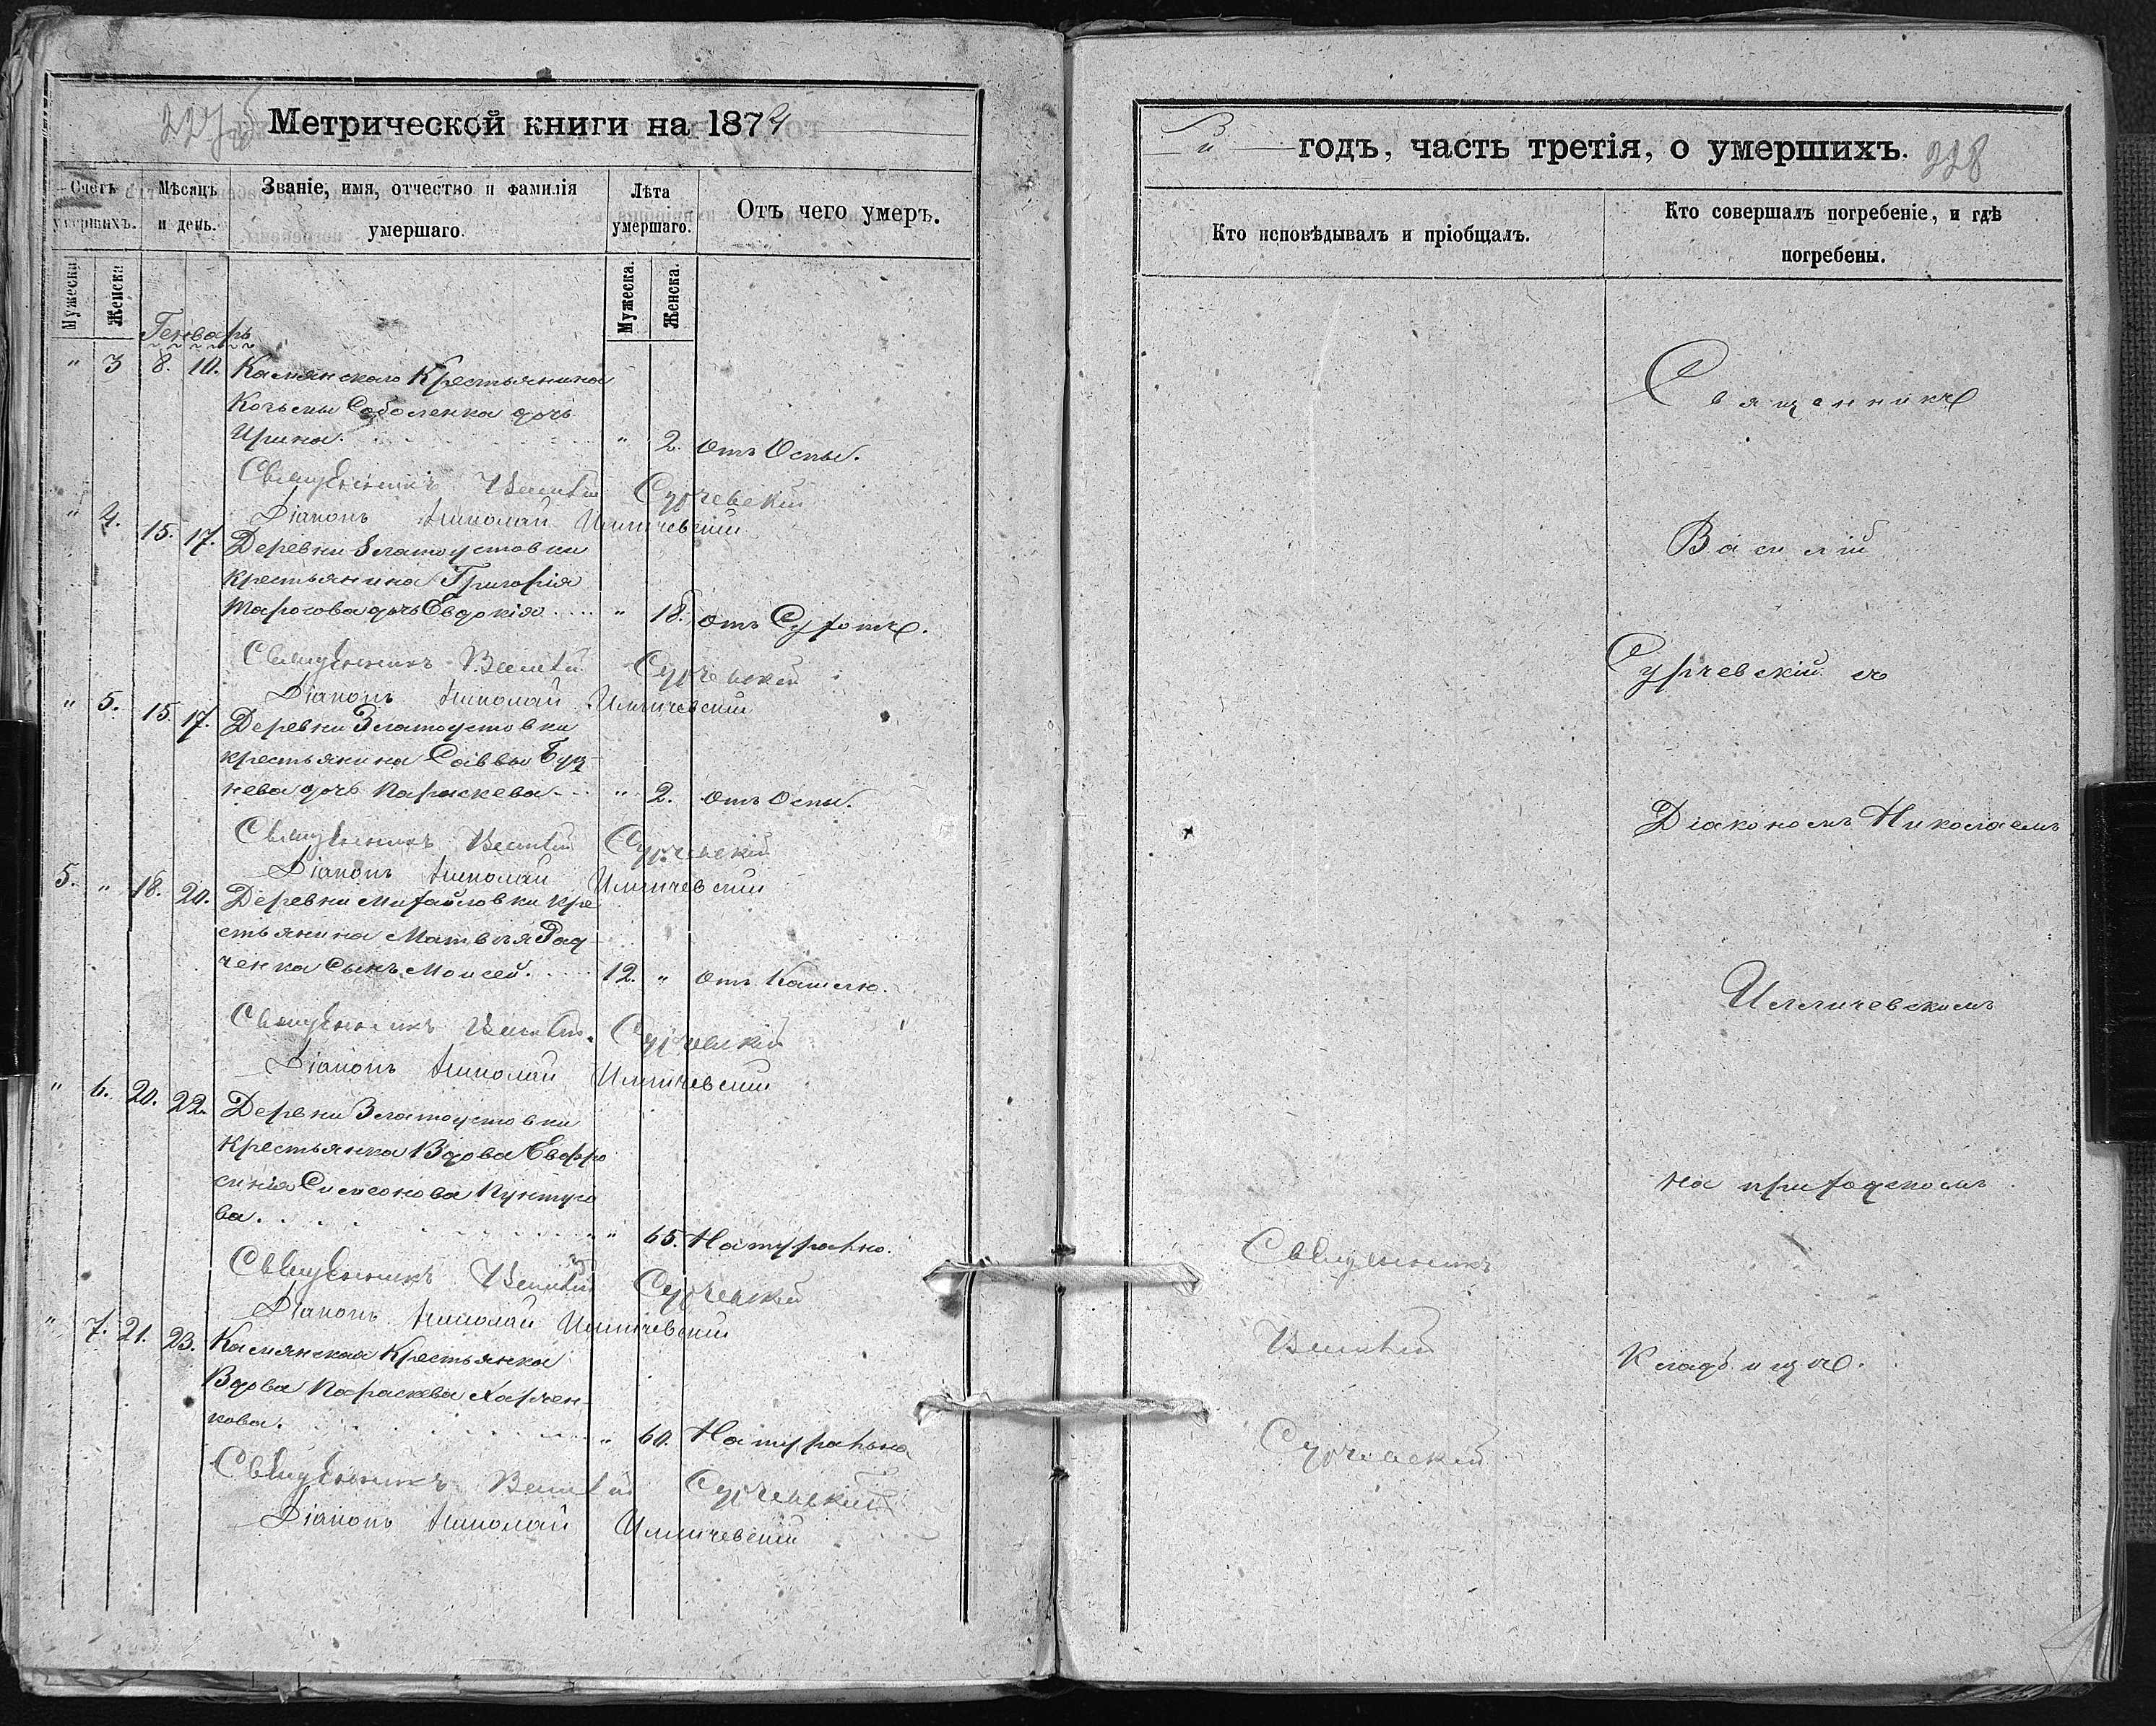 Метрической книги на 1874
Счетъ умершихъ.
Мѣсяцъ и день.
Званіе, имя, отчество и фамилія умершаго.
Лѣта умершаго.
Отъ чего умеръ.
Мужеска
Женска
Мужеска.
Женска.
Генварь
" 3 8. 10. Камянскаго Крестьянина
Козьмы Соболенка дочь
Ирина. " 2. отъ Оспы.
Священникъ Василій Сурчевскій
Діаконъ Николай Илличевскій
" 4. 15. 17. Деревни Златоустовки
крестьянина Григорія
дочь Евдокія " 18. отъ
Священникъ Василій Сурчевскій
Діаконъ Николай Илличевскій
" 5. 15. 17. Деревни Златоустовки
крестьянина Саввы Буд-
нева дочь Параскева " 2. отъ Оспы.
Священникъ Василій Сурчевскій
Діаконъ Николай Илличевскій
5. " 18. 20. Деревни Михайловки кре
стьянина Матвѣя Рад-
ченка сынъ Моисей. 12. " отъ Кашлю.
Священникъ Василій Сурчевскій
Діаконъ Николай Илличевскій
" 6. 20. 22. Деревни Златоустовки
Крестьянка Вдова Евфро
синія Симеонова
ва. " 65. Натурально.
Священникъ Василій Сурчевскій
Діаконъ Николай Илличевскій
" 7. 21. 23. Камянская Крестьянка
Вдова Параскева Харчен-
кова. " 60. Натурально
Священникъ Василій Сурчевскій
Діаконъ Николай Илличевскій
годъ, часть третія, о умершихъ. 228
Кто исповѣдывалъ и пріобщалъ.
Кто совершалъ погребеніе, и гдѣ
погребены.
Священникъ
Василій
Сурчевскій съ
Діакономъ Николаемъ
Илличевскимъ
на приходскомъ
Кладбищѣ.
Священникъ
Василій
Сурчевскій